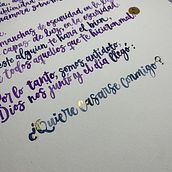 manchas de oscuridad en la luz,
capas de luz, en la oscuridad.
este alguien te hará el bien,
todos aquellos que te hicieron mal
Por lo tanto, somos antídoto,
Dios nos juntó y el día llegó:
¿Quiere casarse conmigo?